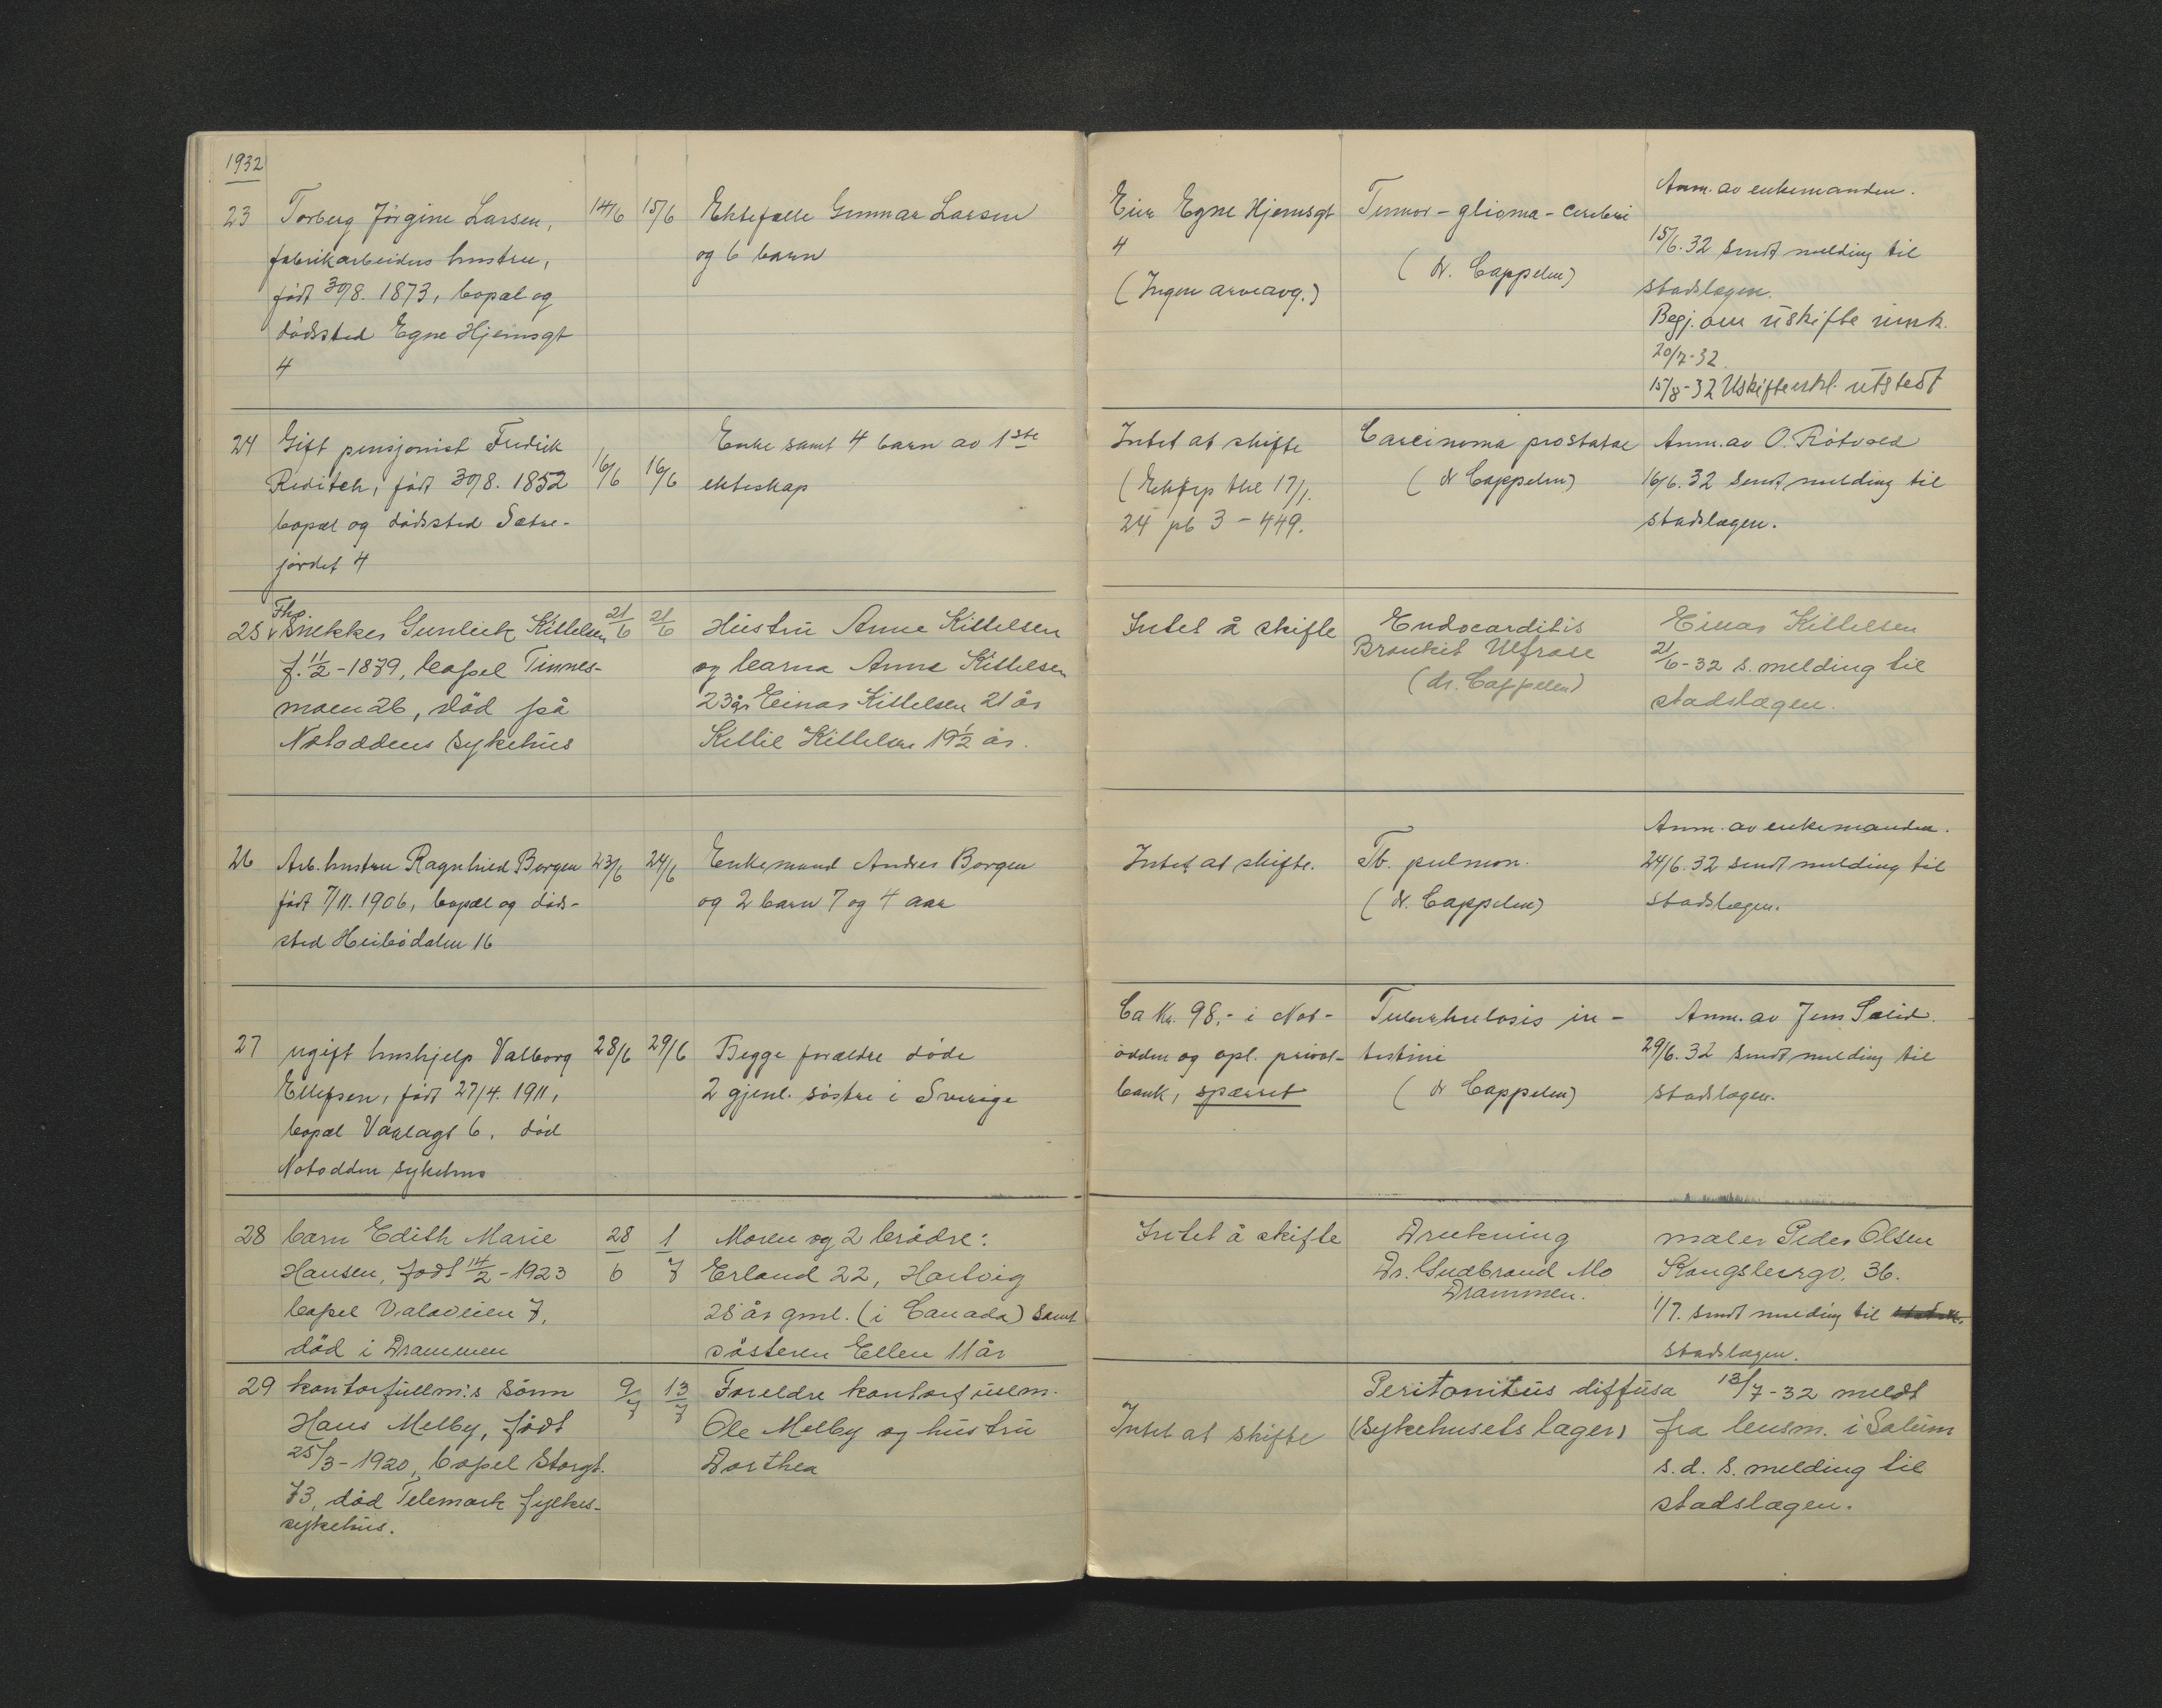 1932
23 Torberg Jörgine Larsen, 14/6 15/6 Ektefælle Gunnar Larsen
fabrikarbeiders hustru, og 6 barn
född 30/8. 1873, bopæl og
dödssted Egne Hjemsgt
4
24 Gift pensjonist Fredrik Enke samt 4 barn av 1ste
Reditch, född 30/8. 1852 16/6 16/6 ekteskap
bopæl og dödssted Sætre-
jordet 4
25 Fhv. Snekker Gunleik Kittelsen 21/6 21/6 Hustru Anne Kittelsen
f. 11/2-1879, bopel Tinnes- og barna Anne Kittelsen
moen 26, död på 23 år Einar Kittelsen 21 år
Notoddens sykehus Kittil Kittelsen 19½ år.
26 Arb. hustru Ragnhild Borgen 23/6 24/6 Enkemand Anders Borgen
född 7/11. 1906, bopæl og döds- og 2 barn 7 og 4 aar
sted Heibödalen 16
27 ugift hushjelp Valborg 28/6 29/6 Begge forældre döde
Ellefsen, född 27/4. 1911, 2 gjenl. söstre i Sverige
bopæl Vaalagt 6. död
Notodden sykehus
28 barn Edith Marie 28/6 1/7 Moren og 2 brödre:
Hansen, född 14/2-1923 Erland 22, Hartvig
bopel Valaveien 7, 28 år gml. (i Canada) samt
död i Drammen sösteren Ellen 11 år
29 kontorfullm:s sönn 9/7 13/7 Foreldre kontorfullm.
Hans Melby, född Ole Melby og hustru
25/3-1920, bopel Storgt. Dorthea
73, död Telemark fylkes-
sykehus.
Eier Egne Hjemsgt Tumor-glioma-cerebri Anm. av enkemanden.
4 (dr. Cappelen) 15/6. 32 sendt melding til
(Ingen arveavg.) stadslægen.
Begj. om uskifte innk.
20/7-32.
15/8-32 Uskifteerkl. utstedt
Intet at skifte Carcinoma prostatae Anm. av O. Rötvold
(Ektep thl 17/1. (dr Cappelen) 16/6. 32 sendt melding til
24 pb 3-449. stadslægen.
Intet å skifte Endocarditis Einar Kittelsen
Bronkit 21/6-32 s. melding til
(dr. Cappelen) stadslægen.
Anm. av enkemanden.
Intet at skifte. Tb. pulmon. 24/6. 32 sendt melding til
(dr. Cappelen) stadslægen.
Ca Kr. 98,- i Not- Tuberkulosis in- Anm. av Jens
odden og opl. privat- testini 29/6. 32 sendt melding til
bank, spærret (dr Cappelen) stadslægen.
Intet å skifte Drukning maler Peder Olsen
Dr. Gudbrand Mo Kongsbergv. 36.
Drammen. 1/7. sendt melding til
stadslægen.
Peritonitus diffusa 13/7-32 meldt
Intet at skifte (Sykehusets læger) fra lensm. i Solum
s. d. s. melding til
stadslægen.